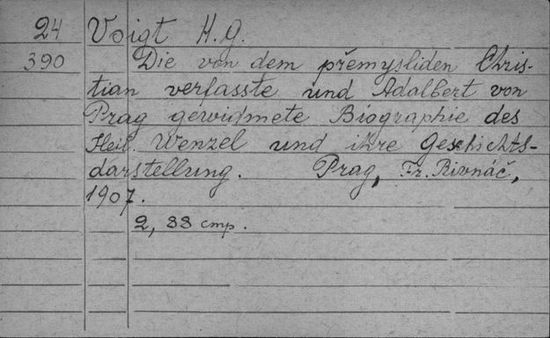 24 Voigt H. G.
390 Die von dem přemysliden Chris-
tian verfasste und Adalbert von
Prag gewidmete Biographie des
Heil. Wenzel und ihre Geschichts-
darstellung. Prag, Fr. Rivnáč,
1907.
2, 88 стр.